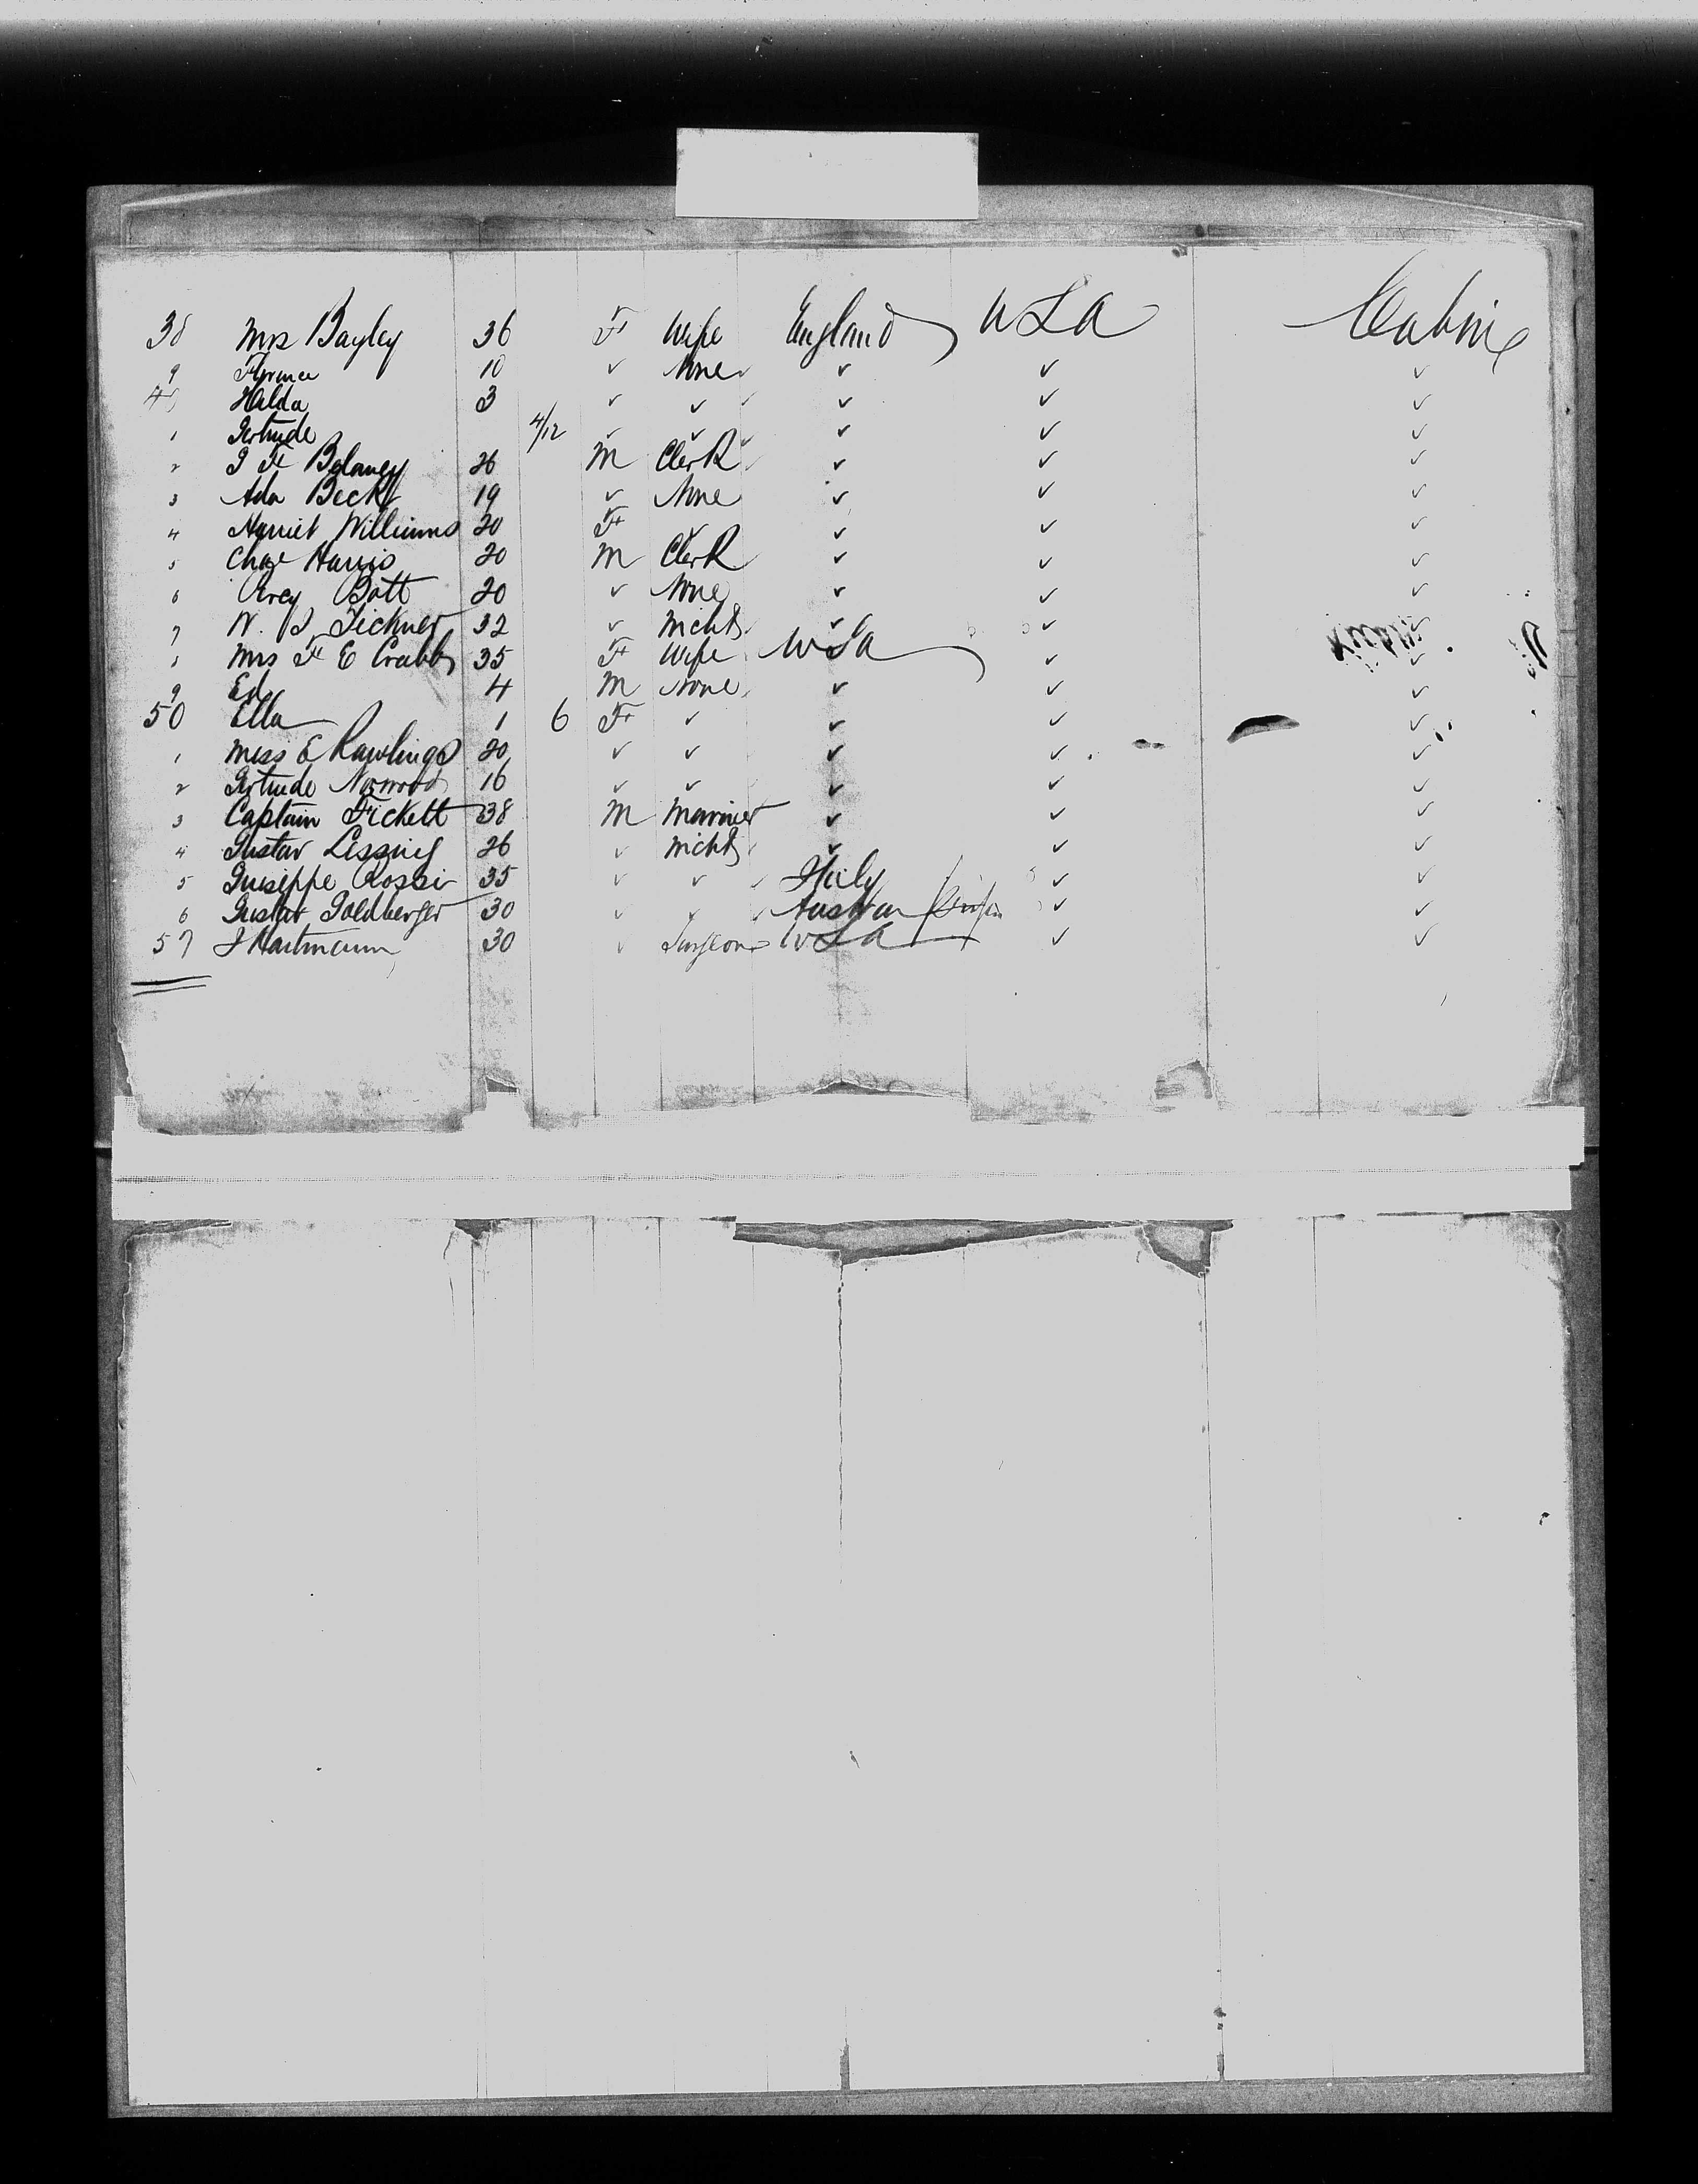 38 Mrs Bayley 36 F Wife England USA Cabin
9 Florence 10 ✓ None ✓ ✓ ✓
40 Hilda 3 ✓ ✓ ✓ ✓ ✓
1 Gertrude 4/12 ✓ ✓ ✓ ✓ ✓
2 26 M Clerk ✓ ✓ ✓
3 Ada Beck 19 ✓ None ✓ ✓ ✓
4 Harriet Williams 20 F ✓ ✓ ✓ ✓
5 Chas Harris 20 M Clerk ✓ ✓ ✓
6 Percy Bott 20 ✓ None ✓ ✓ ✓
7 W. J. Tickner 32 ✓ Mcht ✓ ✓ ✓
8 Mrs F E Crabb 35 F Wife USA ✓ ✓
9 Ed 4 M None ✓ ✓ ✓
50 Ella 1 6 F ✓ ✓ ✓ ✓
1 Miss E Rawlings 20 ✓ ✓ ✓ ✓ ✓
2 Gertrude Norwood 16 ✓ ✓ ✓ ✓ ✓
3 Captain Fickett 38 M Marriner ✓ ✓ ✓
4 Gustav Lessing 26 ✓ Mcht ✓ ✓ ✓
5 Guiseppe Rossi 35 ✓ ✓ Italy ✓ ✓
6 Gustav Goldberger 30 ✓ ✓ Austria ✓ ✓
57 J Hartmann 30 ✓ Surgeon USA ✓ ✓